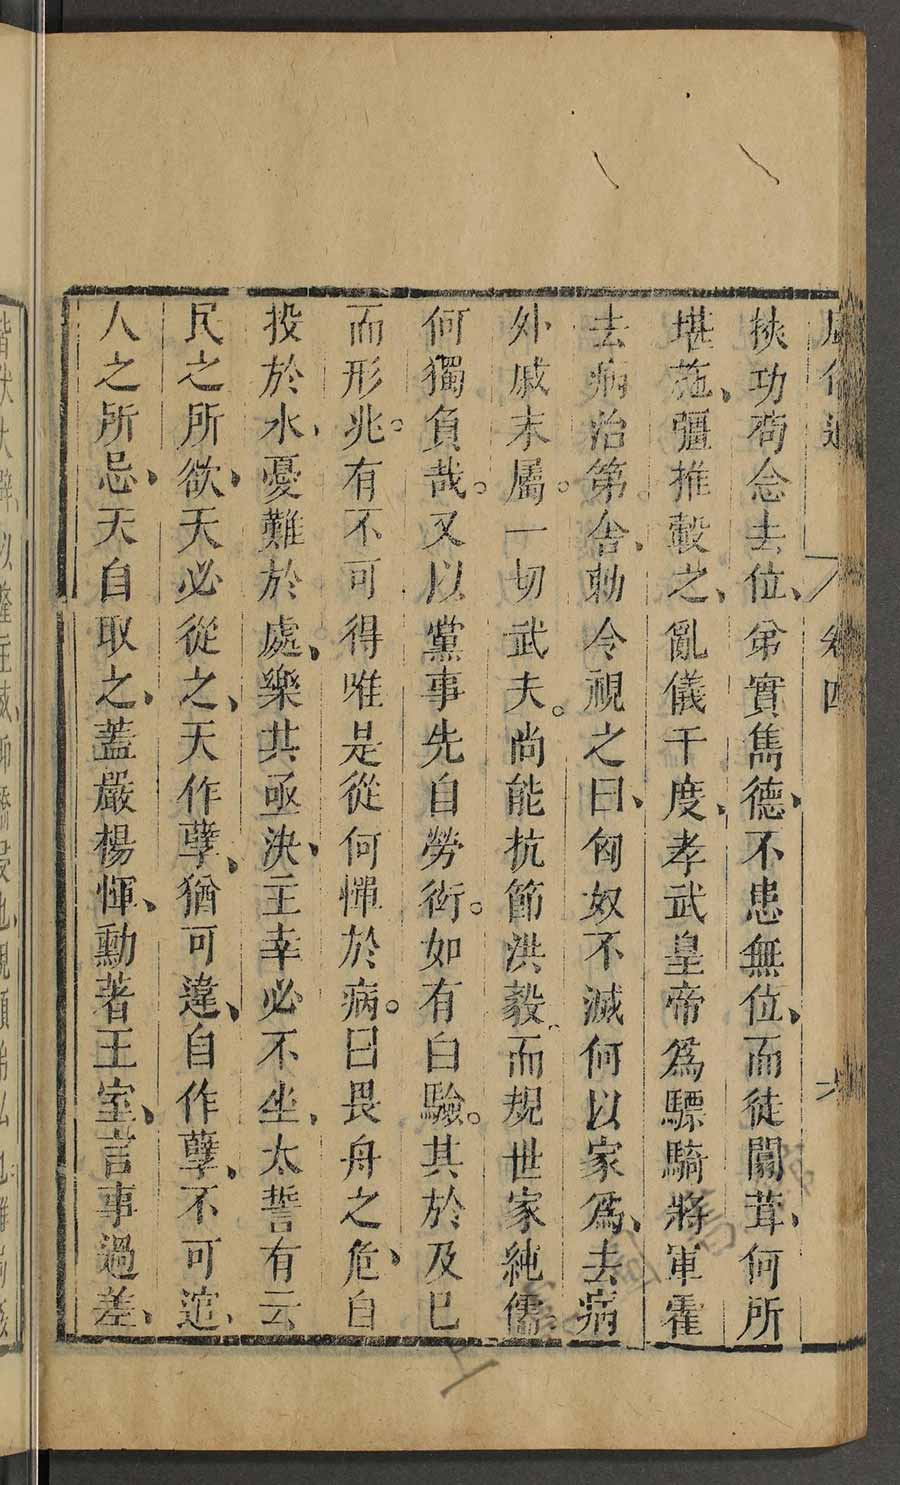 風俗通 卷四 六
挾功苟念去位、弟實雋德、不患無位、而徒闒茸、何所
堪施、彊推轂之、亂儀干度、孝武皇帝爲驃騎將軍霍
去病治第舍、勑令視之曰、匈奴不滅何以家爲、去病
外戚末屬。一切武夫。尚能抗節洪毅而規世家純儒
何獨負哉。又以黨事先自勞衒。如有白驗。其於及已
而形兆。有不可得唯是從何憚於病。曰畏舟之危、自
投於水、憂難於處、樂其亟決、主幸必不坐、太誓有云
民之所欲、天必從之、天作孽、猶可違、自作孽、不可逭、
人之所忌、天自取之、蓋嚴楊惲、勳著王室、言事過差、